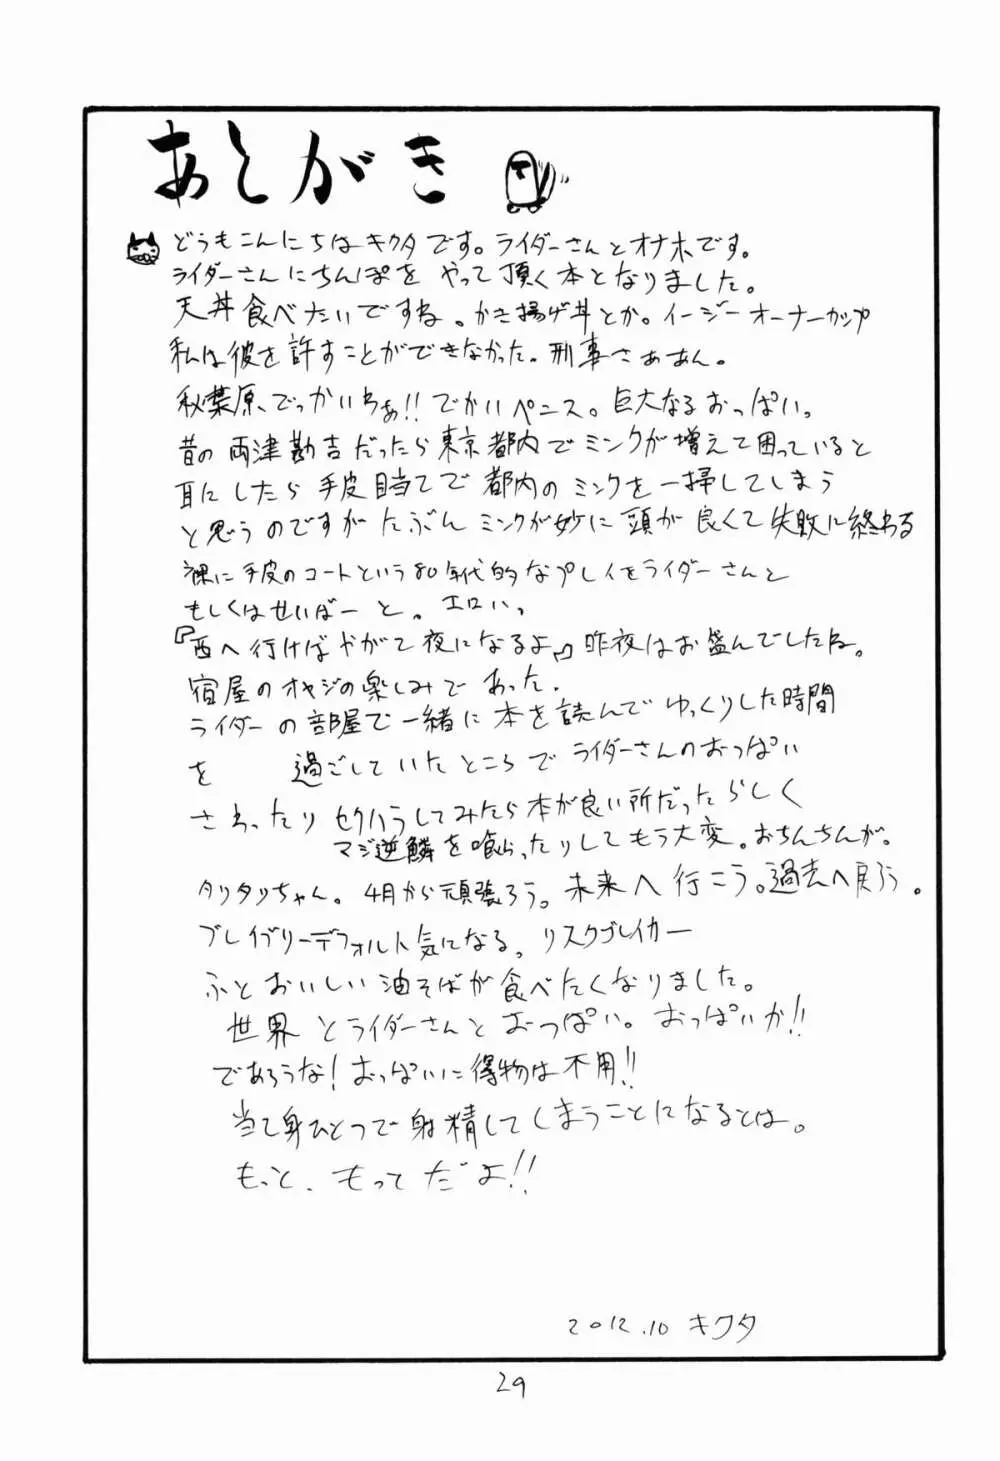 あとがき
どうもこんにちはキクタです。ライダーさんとオナホです。
ライダーさんにちんぽを やって頂く本となりました。
天丼食べたいですね。かき揚げ丼とか。イージーオーナーカップ
私は彼を許すことができなかった。刑事さぁあん。
秋葉原、でっかいわぁ!!でかいペニス。巨大なるおっぱい。
昔の両津勘吉だったら東京都内でミンクが増えて困っていると
耳にしたら手皮目当てで都内のミンクを一掃してしまう
と思うのですがたぶんミンクが妙に頭が良くて失敗に終わる
裸に手皮のコートという80年代的なプレイをライダーさんと
もしくはせいばーと。エロい。
『西へ行けばやがて夜になるよ』昨夜はお盛んでしたね。
宿屋のオヤジの楽しみであった.
ライダーの部屋で一緒に本を読んでゆっくりした時間
を 過ごしていたところでライダーさんのおっぱい
さわったりセクハラしてみたら本が良い所だったらしく
マジ逆鱗を喰らったりしてもう大変。おちんちんが。
タリタリちゃん。4月から頑張ろう。未来へ行こう。過去へ戻ろう。
ブレイブリーデフォルト気になる。リスクブレイカー
ふとおいしい油そばが食べたくなりました。
世界とライダーさんとおっぱい。おっぱいか!!
であろうな!おっぱいに得物は不用!!
当て身ひとつで射精してしまうことになるとは。
もっと、もってだよ!!
2012.10 キクタ
29